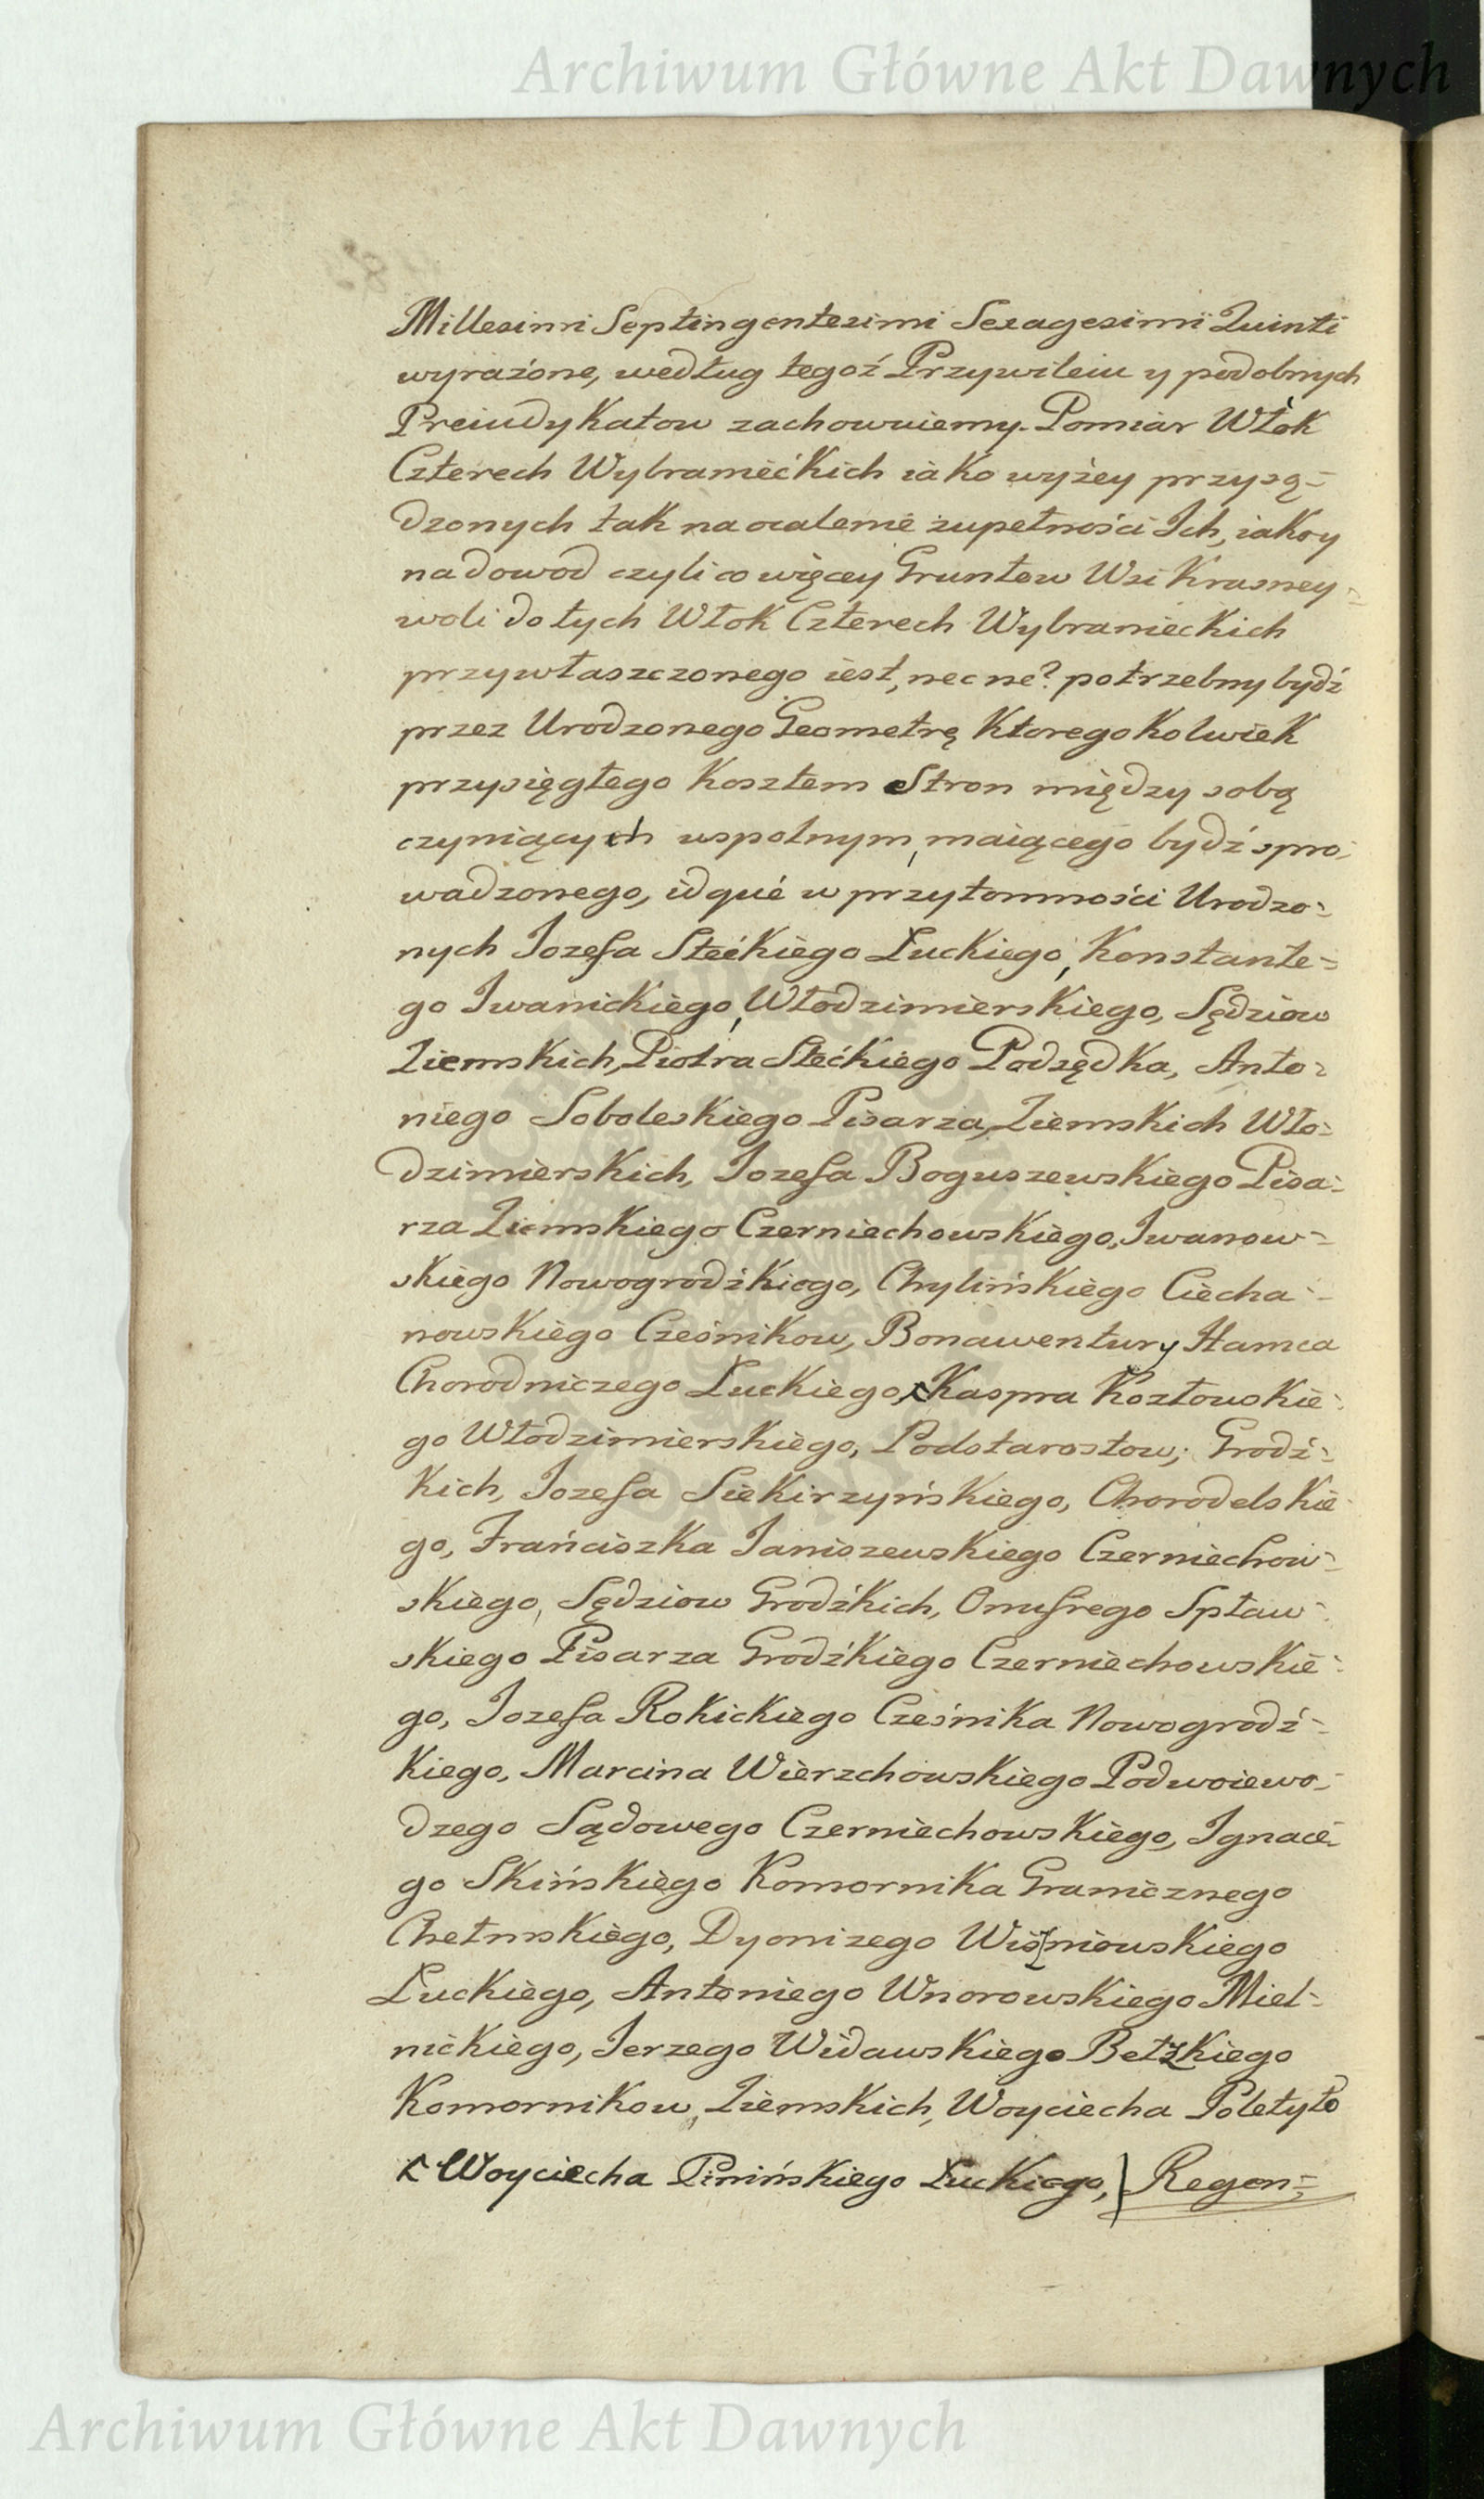 Archiwum Główne Akt Dawnych
Millesimi Septingentesimi Sexagesimi Quinti
wyrażone, według tegoż Przywileiu y podobnych
Preiudykatow zachowuiemy. Pomiar Włok
Czterech Wybranieckich iako wyżey przysą-
dzonych tak na ocalenie zupełności Jch, iako y
na dowod czyli co więcey Gruntow Wsi Krasney-
woli do tych Włok Czterech Wybranieckich
przywłaszczonego iest, nec ne? potrzebny bydź
przez Urodzonego Geometrę Ktoregokolwiek
przysięgłego Kosztem Stron między sobą
czyniących wspolnym, maiącego bydź spro-
wadzonego, idque w przytomności Urodzo-
nych Jozefa Steckiego Łuckiego, Konstante-
go Jwanickiego, Włodzimierskiego, Sędziow
Ziemskich, Piotra Steckiego Podsędka, Anto-
niego Soboleskiego Pisarza, Ziemskich Wło-
dzimierskich, Jozefa Boguszewskiego Pisa-
rza Ziemskiego Czerniechowskiego, Jwanow-
skiego Nowogrodzkiego, Chylińskiego Ciecha-
nowskiego Cześnikow, Bonawentury Hamca
Chorodniczego Łuckiego, Kaspra Kozłowskie-
go Włodzimierskiego, Podstarostow, Grodz-
kich, Jozefa Siekirzyńskiego, Chorodelskie-
go, Franciszka Janiszewskiego Czerniechow-
skiego, Sędziow Grodzkich, Onufrego Spław-
skiego Pisarza Grodzkiego Czerniechowskie-
go, Jozefa Rokickiego Cześnika Nowogrodz-
kiego, Marcina Wierzchowskiego Podwoiewo-
dzego Sądowego Czerniechowskiego, Jgnace-
go Skińskiego Komornika Granicznego
Chełmskiego, Dyonizego Wiśniowskiego
Łuckiego, Antoniego Wnorowskiego Miel-
nickiego, Jerzego Widawskiego Bełzkiego
Komornikow, Ziemskich, Woyciecha Poletyło
Woyciecha Pinińskiego Łuckiego, Regen-
Archiwum Główne Akt Dawnych